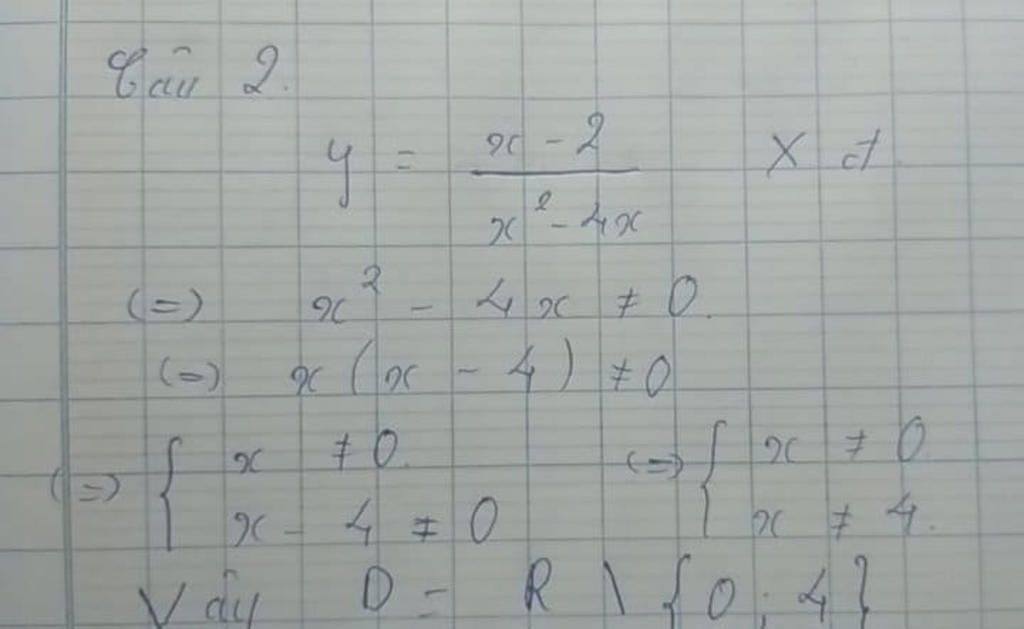 Câu 2.
y = \frac{x - 2}{x^2 - 4x} Xđ
(=) x² - 4x ≠ 0.
(=) x(x - 4) ≠ 0
(=) { x ≠ 0. x - 4 ≠ 0 (=) { x ≠ 0 x ≠ 4.
Vậy D = R \ {0; 4}